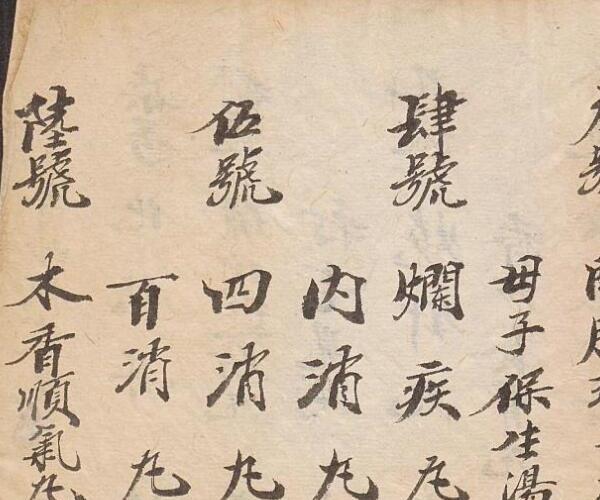 母子保生湯
肆號 爛疾丸
内消丸
伍號 四消丸
百消丸
陸號 木香順氣丸